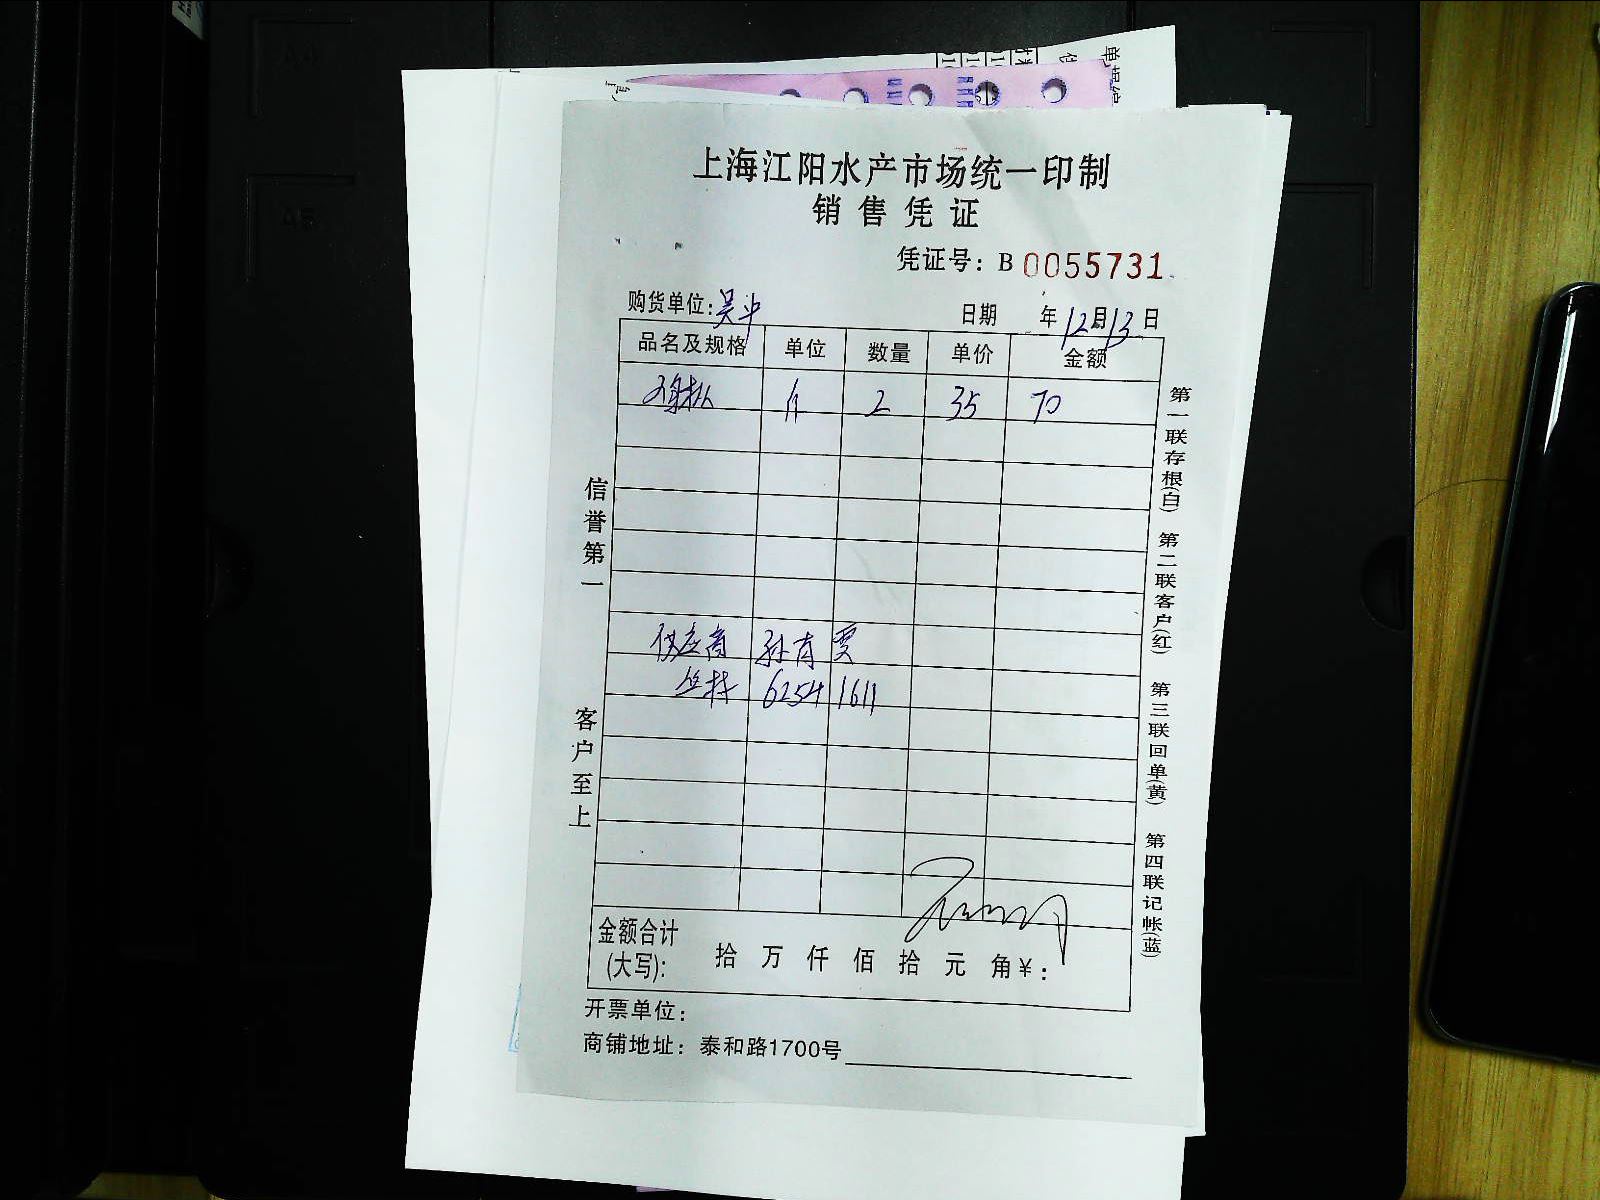 上海江阳水产市场统一印制
销售凭证
凭证号：B 0055731
购货单位：吴中 日期 年12月13日
品名及规格 单位 数量 单价 金额
斤 2 35 70
供应商 孙育雯
6254 1611
金额合计
(大写)： 拾 万 仟 佰 拾 元 角￥：
开票单位：
商铺地址：泰和路1700号
信誉第一
客户至上
第一联存根(白) 第二联客户(红) 第三联回单(黄) 第四联记帐(蓝)